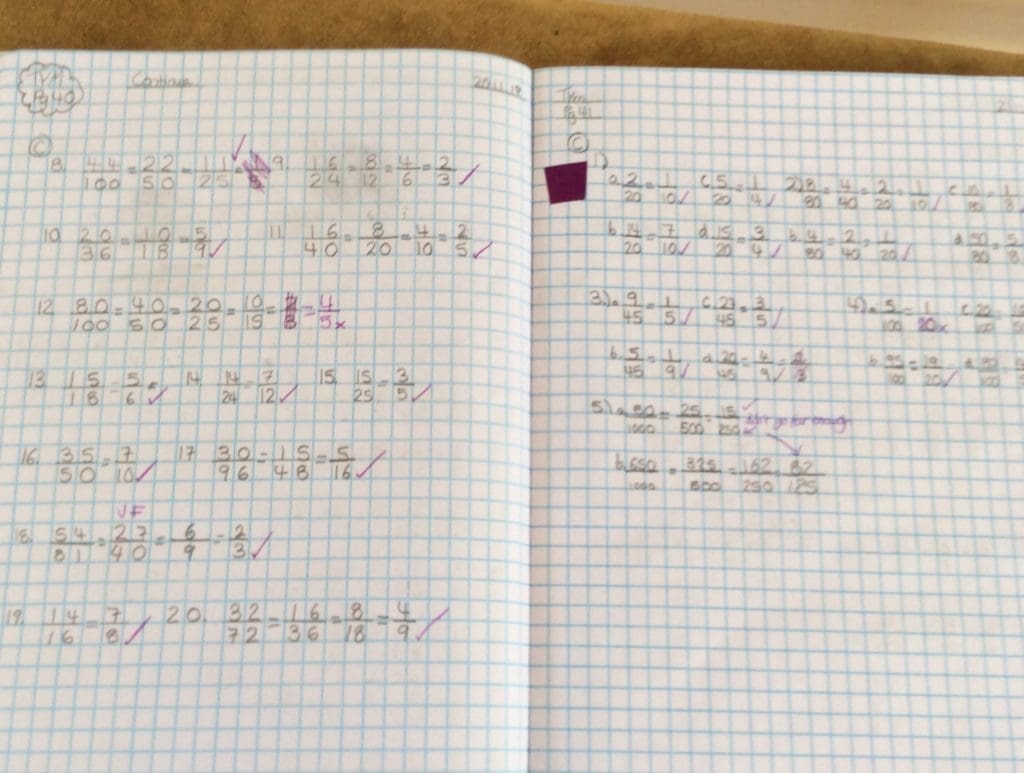 TYM Continue 20.11.19
Pg 40
C
8. 44/100 = 22/50 = 11/25 ✓ = 9. 16/24 = 8/12 = 4/6 = 2/3 ✓
10. 20/36 = 10/18 = 5/9 ✓ 11. 16/40 = 8/20 = 4/10 = 2/5 ✓
12. 80/100 = 40/50 = 20/25 = 10/15 = = 4/5 x
13. 15/18 = 5/6 ✓ 14 14/24 = 7/12 ✓ 15. 15/25 = 3/5 ✓
16. 35/50 = 7/10 ✓ 17 30/96 = 15/48 = 5/16 ✓
VF
18. 54/81 = 27/40 = 6/9 = 2/3 ✓
19. 14/16 = 7/8 ✓ 20. 32/72 = 16/36 = 8/18 = 4/9 ✓
Tym
Pg 41
C
1) a. 2/20 = 1/10 ✓ c. 5/20 = 1/4 ✓ 2) 8/80 = 4/40 = 2/20 = 1/10 ✓ c. = 1/8 ✓
b. 14/20 = 7/10 ✓ d 15/20 = 3/4 ✓ b. 4/80 = 2/40 = 1/20 ✓ d 50/80 = 5/8
3.) a. 9/45 = 1/5 ✓ c. 27/45 = 3/5 ✓ 4) a. 5/100 = 1/20 x c. 20/100 =
b. 5/45 = 1/9 ✓ d. 20/45 = 4/9 ✓ = 2/3 b. 95/100 = 19/20 ✓ d.
5.) a. 50/1000 = 25/500 = 15/250 ✓ didn't go far enough
b. 650/1000 = 325/500 = 162/250 = 82/125